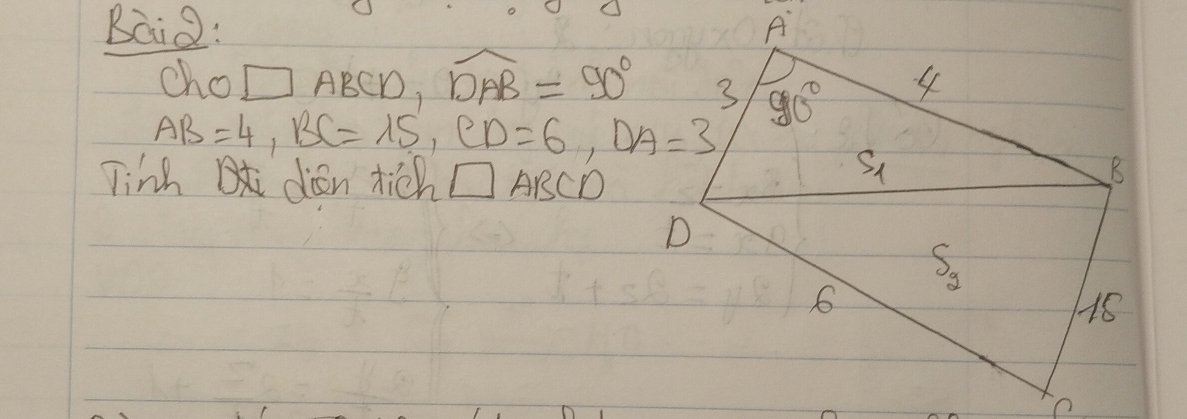 Bài 2:
Cho □ ABCD, DAB = 90°
AB = 4, BC = 15, CD = 6, DA = 3
Tính diện tích □ ABCD
A
3
90°
4
S1
B
D
S2
6
15
C